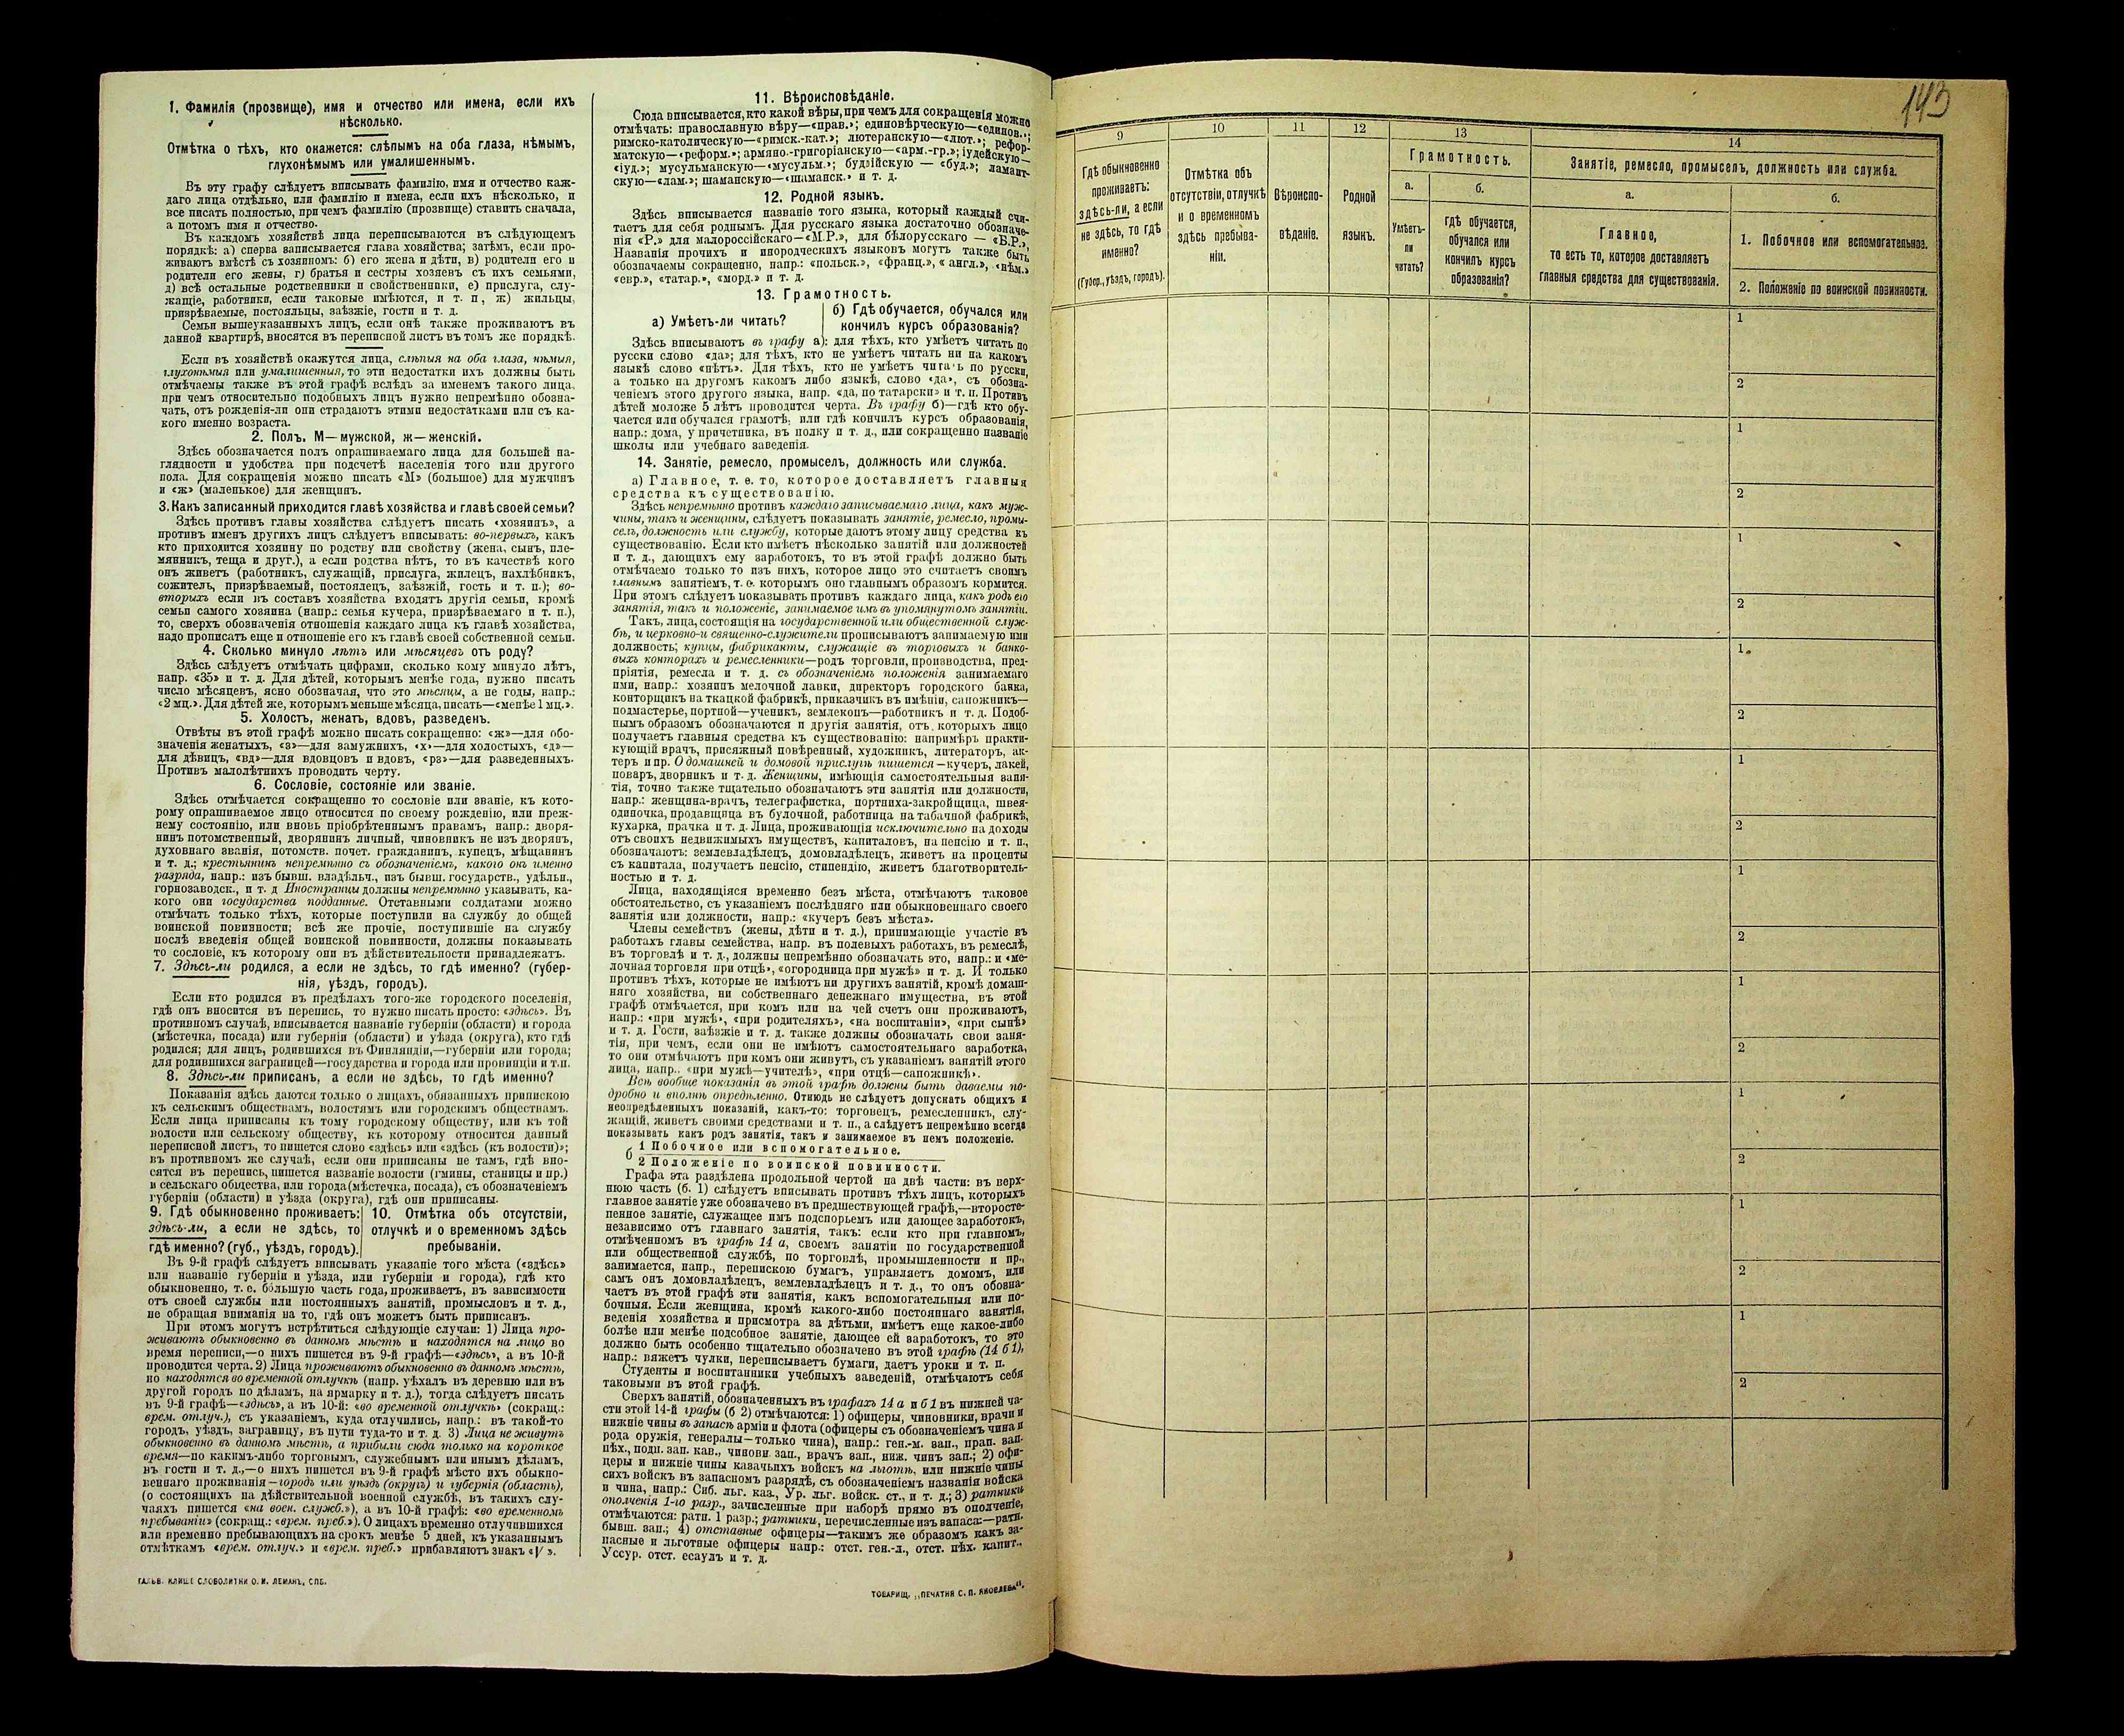 1. Фамилія (прозвище), имя и отчество или имена, если ихъ
нѣсколько.
Отмѣтка о тѣхъ, кто окажется: слѣпымъ на оба глаза, нѣмымъ,
глухонѣмымъ или умалишеннымъ.
Въ эту графу слѣдуетъ вписывать фамилію, имя и отчество каж-
даго лица отдѣльно, или фамилію и имена, если ихъ нѣсколько, и
все писать полностью, при чемъ фамилію (прозвище) ставить сначала,
а потомъ имя и отчество.
Въ каждомъ хозяйствѣ лица переписываются въ слѣдующемъ
порядкѣ: а) сперва записывается глава хозяйства; затѣмъ, если про-
живаютъ вмѣстѣ съ хозяиномъ: б) его жена и дѣти, в) родители его и
родители его жены, г) братья и сестры хозяевъ съ ихъ семьями,
д) всѣ остальные родственники и свойственники, е) прислуга, слу-
жащіе, работники, если таковые имѣются, и т. п, ж) жильцы,
призрѣваемые, постояльцы, заѣзжіе, гости и т. д.
Семьи вышеуказанныхъ лицъ, если онѣ также проживаютъ въ
данной квартирѣ, вносятся въ переписной листъ въ томъ же порядкѣ.
Если въ хозяйствѣ окажутся лица, слѣпыя на оба глаза, нѣмыя,
глухонѣмыя или умалишенныя, то эти недостатки ихъ должны быть
отмѣчаемы также въ этой графѣ вслѣдъ за именемъ такого лица,
при чемъ относительно подобныхъ лицъ нужно непремѣнно обозна-
чать, отъ рожденія-ли они страдаютъ этими недостатками или съ ка-
кого именно возраста.
2. Полъ. М—мужской, ж—женскій.
Здѣсь обозначается полъ опрашиваемаго лица для большей на-
глядности и удобства при подсчетѣ населенія того или другого
пола. Для сокращенія можно писать «М» (большое) для мужчинъ
и «ж» (маленькое) для женщинъ.
3. Какъ записанный приходится главѣ хозяйства и главѣ своей семьи?
Здѣсь противъ главы хозяйства слѣдуетъ писать «хозяинъ», а
противъ именъ другихъ лицъ слѣдуетъ вписывать: во-первыхъ, какъ
кто приходится хозяину по родству или свойству (жена, сынъ, пле-
мянникъ, теща и друг.), а если родства нѣтъ, то въ качествѣ кого
онъ живетъ (работникъ, служащій, прислуга, жилецъ, нахлѣбникъ,
сожитель, призрѣваемый, постоялецъ, заѣзжій, гость и т. п.); во-
вторыхъ если въ составъ хозяйства входятъ другія семьи, кромѣ
семьи самого хозяина (напр.: семья кучера, призрѣваемаго и т. п.),
то, сверхъ обозначенія отношенія каждаго лица къ главѣ хозяйства,
надо прописать еще и отношеніе его къ главѣ своей собственной семьи.
4. Сколько минуло лѣтъ или мѣсяцевъ отъ роду?
Здѣсь слѣдуетъ отмѣчать цифрами, сколько кому минуло лѣтъ,
напр. «35» и т. д. Для дѣтей, которымъ менѣе года, нужно писать
число мѣсяцевъ, ясно обозначая, что это мѣсяцы, а не годы, напр.:
«2 мц.». Для дѣтей же, которымъ меньше мѣсяца, писать—«менѣе 1 мц.».
5. Холостъ, женатъ, вдовъ, разведенъ.
Отвѣты въ этой графѣ можно писать сокращенно: «ж»—для обо-
значенія женатыхъ, «з»—для замужнихъ, «х»—для холостыхъ, «д»—
для дѣвицъ, «вд»—для вдовцовъ и вдовъ, «рз»—для разведенныхъ.
Противъ малолѣтнихъ проводить черту.
6. Сословіе, состояніе или званіе.
Здѣсь отмѣчается сокращенно то сословіе или званіе, къ кото-
рому опрашиваемое лицо относится по своему рожденію, или преж-
нему состоянію, или вновь пріобрѣтеннымъ правамъ, напр.: дворя-
нинъ потомственный, дворянинъ личный, чиновникъ не изъ дворянъ,
духовнаго званія, потомств. почет. гражданинъ, купецъ, мѣщанинъ
и т. д.; крестьянинъ непремѣнно съ обозначеніемъ, какого онъ именно
разряда, напр.: изъ бывш. владѣльч., изъ бывш. государств., удѣльн.,
горнозаводск., и т. д Иностранцы должны непремѣнно указывать, ка-
кого они государства подданные. Отставными солдатами можно
отмѣчать только тѣхъ, которые поступили на службу до общей
воинской повинности; всѣ же прочіе, поступившіе на службу
послѣ введенія общей воинской повинности, должны показывать
то сословіе, къ которому они въ дѣйствительности принадлежатъ.
7. Здѣсь-ли родился, а если не здѣсь, то гдѣ именно? (губер-
нія, уѣздъ, городъ).
Если кто родился въ предѣлахъ того-же городского поселенія,
гдѣ онъ вносится въ перепись, то нужно писать просто: «здѣсь». Въ
противномъ случаѣ, вписывается названіе губерніи (области) и города
(мѣстечка, посада) или губерніи (области) и уѣзда (округа), кто гдѣ
родился; для лицъ, родившихся въ Финляндіи,—губерніи или города;
для родившихся заграницей—государства и города или провинціи и т.п.
8. Здѣсь-ли приписанъ, а если не здѣсь, то гдѣ именно?
Показанія здѣсь даются только о лицахъ, обязанныхъ припискою
къ сельскимъ обществамъ, волостямъ или городскимъ обществамъ.
Если лица приписаны къ тому городскому обществу, или къ той
волости или сельскому обществу, къ которому относится данный
переписной листъ, то пишется слово «здѣсь» или «здѣсь (къ волости)»;
въ противномъ же случаѣ, если они приписаны не тамъ, гдѣ вно-
сятся въ перепись, пишется названіе волости (гмины, станицы и пр.)
и сельскаго общества, или города (мѣстечка, посада), съ обозначеніемъ
губерніи (области) и уѣзда (округа), гдѣ они приписаны.
9. Гдѣ обыкновенно проживаетъ:
здѣсь-ли, а если не здѣсь, то
гдѣ именно? (губ., уѣздъ, городъ).
10. Отмѣтка объ отсутствіи,
отлучкѣ и о временномъ здѣсь
пребываніи.
Въ 9-й графѣ слѣдуетъ вписывать указаніе того мѣста («здѣсь»
или названіе губерніи и уѣзда, или губерніи и города), гдѣ кто
обыкновенно, т. е. бо́льшую часть года, проживаетъ, въ зависимости
отъ своей службы или постоянныхъ занятій, промысловъ и т. д.,
не обращая вниманія на то, гдѣ онъ можетъ быть приписанъ.
При этомъ могутъ встрѣтиться слѣдующіе случаи: 1) Лица про-
живаютъ обыкновенно въ данномъ мѣстѣ и находятся на лицо во
время переписи,—о нихъ пишется въ 9-й графѣ—«здѣсь», а въ 10-й
проводится черта. 2) Лица проживаютъ обыкновенно въ данномъ мѣстѣ,
но находятся во временной отлучкѣ (напр. уѣхалъ въ деревню или въ
другой городъ по дѣламъ, на ярмарку и т. д.), тогда слѣдуетъ писать
въ 9-й графѣ—«здѣсь», а въ 10-й: «во временной отлучкѣ» (сокращ.:
врем. отлуч.), съ указаніемъ, куда отлучились, напр.: въ такой-то
городъ, уѣздъ, заграницу, въ пути туда-то и т. д. 3) Лица не живутъ
обыкновенно въ данномъ мѣстѣ, а прибыли сюда только на короткое
время—по какимъ-либо торговымъ, служебнымъ или инымъ дѣламъ,
въ гости и т. д.,—о нихъ пишется въ 9-й графѣ мѣсто ихъ обыкно-
веннаго проживанія—городъ или уѣздъ (округъ) и губернія (область),
(о состоящихъ на дѣйствительной военной службѣ, въ такихъ слу-
чаяхъ пишется «на воен. службѣ»), а въ 10-й графѣ: «во временномъ
пребываніи» (сокращ.: «врем. преб.»). О лицахъ временно отлучившихся
или временно пребывающихъ на срокъ менѣе 5 дней, къ указаннымъ
отмѣткамъ «врем. отлуч.» и «врем. преб.» прибавляютъ знакъ «V».
ГАЛЬВ. КЛИШЕ СЛОВОЛИТНИ О. И. ЛЕМАНЪ, СПБ.
11. Вѣроисповѣданіе.
Сюда вписывается, кто какой вѣры, при чемъ для сокращенія можно
отмѣчать: православную вѣру—«прав.»; единовѣрческую—«единов.»;
римско-католическую—«римск.-кат.»; лютеранскую—«лют.»; рефор-
матскую—«реформ.»; армяно.-григоріанскую—«арм.-гр.»; іудейскую—
«іуд.»; мусульманскую—«мусульм.»; буддійскую — «буд.»; ламаит-
скую—«лам.»; шаманскую—«шаманск.» и т. д.
12. Родной языкъ.
Здѣсь вписывается названіе того языка, который каждый счи-
таетъ для себя роднымъ. Для русскаго языка достаточно обозначе-
нія «Р.» для малороссійскаго—«М.Р.», для бѣлорусскаго — «Б.Р.»,
Названія прочихъ и инородческихъ языковъ могутъ также быть
обозначаемы сокращенно, напр.: «польск.», «франц.», «англ.», «нѣм.»
«евр.», «татар.», «морд.» и т. д.
13. Грамотность.
а) Умѣетъ-ли читать?
б) Гдѣ обучается, обучался или
кончилъ курсъ образованія?
Здѣсь вписываютъ въ графу а): для тѣхъ, кто умѣетъ читать по
русски слово «да»; для тѣхъ, кто не умѣетъ читать ни на какомъ
языкѣ слово «нѣтъ». Для тѣхъ, кто не умѣетъ читать по русски,
а только на другомъ какомъ либо языкѣ, слово «да», съ обозна-
ченіемъ этого другого языка, напр. «да, по татарски» и т. п. Противъ
дѣтей моложе 5 лѣтъ проводится черта. Въ графу б)—гдѣ кто обу-
чается или обучался грамотѣ, или гдѣ кончилъ курсъ образованія,
напр.: дома, у причетника, въ полку и т. д., или сокращенно названіе
школы или учебнаго заведенія.
14. Занятіе, ремесло, промыселъ, должность или служба.
а) Главное, т. е. то, которое доставляетъ главныя
средства къ существованію.
Здѣсь непремѣнно противъ каждаго записываемаго лица, какъ муж-
чины, такъ и женщины, слѣдуетъ показывать занятіе, ремесло, промы-
селъ, должность или службу, которые даютъ этому лицу средства къ
существованію. Если кто имѣетъ нѣсколько занятій или должностей
и т. д., дающихъ ему заработокъ, то въ этой графѣ должно быть
отмѣчаемо только то изъ нихъ, которое лицо это считаетъ своимъ
главнымъ занятіемъ, т. е. которымъ оно главнымъ образомъ кормится.
При этомъ слѣдуетъ показывать противъ каждаго лица, какъ родъ его
занятія, такъ и положеніе, занимаемое имъ въ упомянутомъ занятіи.
Такъ, лица, состоящія на государственной или общественной служ-
бѣ, и церковно-и священно-служители прописываютъ занимаемую ими
должность; купцы, фабриканты, служащіе въ торговыхъ и банко-
выхъ конторахъ и ремесленники—родъ торговли, производства, пред-
пріятія, ремесла и т. д. съ обозначеніемъ положенія занимаемаго
ими, напр.: хозяинъ мелочной лавки, директоръ городского банка,
конторщикъ на ткацкой фабрикѣ, приказчикъ въ имѣніи, сапожникъ—
подмастерье, портной—ученикъ, землекопъ—работникъ и т. д. Подоб-
нымъ образомъ обозначаются и другія занятія, отъ которыхъ лицо
получаетъ главныя средства къ существованію: напримѣръ практи-
кующій врачъ, присяжный повѣренный, художникъ, литераторъ, ак-
теръ и пр. О домашней и домовой прислугѣ пишется—кучеръ, лакей,
поваръ, дворникъ и т. д. Женщины, имѣющія самостоятельныя заня-
тія, точно также тщательно обозначаютъ эти занятія или должности,
напр.: женщина-врачъ, телеграфистка, портниха-закройщица, швея-
одиночка, продавщица въ булочной, работница на табачной фабрикѣ,
кухарка, прачка и т. д. Лица, проживающія исключительно на доходы
отъ своихъ недвижимыхъ имуществъ, капиталовъ, на пенсію и т. п.,
обозначаютъ: землевладѣлецъ, домовладѣлецъ, живетъ на проценты
съ капитала, получаетъ пенсію, стипендію, живетъ благотворитель-
ностью и т. д.
Лица, находящіяся временно безъ мѣста, отмѣчаютъ таковое
обстоятельство, съ указаніемъ послѣдняго или обыкновеннаго своего
занятія или должности, напр.: «кучеръ безъ мѣста».
Члены семействъ (жены, дѣти и т. д.), принимающіе участіе въ
работахъ главы семейства, напр. въ полевыхъ работахъ, въ ремеслѣ,
въ торговлѣ и т. д., должны непремѣнно обозначать это, напр.: и «ме-
лочная торговля при отцѣ», «огородница при мужѣ» и т. д. И только
противъ тѣхъ, которые не имѣютъ ни другихъ занятій, кромѣ домаш-
няго хозяйства, ни собственнаго денежнаго имущества, въ этой
графѣ отмѣчается, при комъ или на чей счетъ они проживаютъ,
напр.: «при мужѣ», «при родителяхъ», «на воспитаніи», «при сынѣ»
и т. д. Гости, заѣзжіе и т. д. также должны обозначать свои заня-
тія, при чемъ, если они не имѣютъ самостоятельнаго заработка,
то они отмѣчаютъ при комъ они живутъ, съ указаніемъ занятій этого
лица, напр.. «при мужѣ—учителѣ», «при отцѣ—сапожникѣ».
Всѣ вообще показанія въ этой графѣ должны быть даваемы по-
дробно и вполнѣ опредѣленно. Отнюдь не слѣдуетъ допускать общихъ и
неопредѣленныхъ показаній, какъ-то: торговецъ, ремесленникъ, слу-
жащій, живетъ своими средствами и т. п., а слѣдуетъ непремѣнно всегда
показывать какъ родъ занятія, такъ и занимаемое въ немъ положеніе.
б 1 Побочное или вспомогательное.
2 Положеніе по воинской повинности.
Графа эта раздѣлена продольной чертой на двѣ части: въ верх-
нюю часть (б. 1) слѣдуетъ вписывать противъ тѣхъ лицъ, которыхъ
главное занятіе уже обозначено въ предшествующей графѣ,—второсте-
пенное занятіе, служащее имъ подспорьемъ или дающее заработокъ,
независимо отъ главнаго занятія, такъ: если кто при главномъ,
отмѣченномъ въ графѣ 14 а, своемъ занятіи по государственной
или общественной службѣ, по торговлѣ, промышленности и пр.,
занимается, напр., перепискою бумагъ, управляетъ домомъ, или
самъ онъ домовладѣлецъ, землевладѣлецъ и т. д., то онъ обозна-
чаетъ въ этой графѣ эти занятія, какъ вспомогательныя или по-
бочныя. Если женщина, кромѣ какого-либо постояннаго занятія,
веденія хозяйства и присмотра за дѣтьми, имѣетъ еще какое-либо
болѣе или менѣе подсобное занятіе, дающее ей заработокъ, то это
должно быть особенно тщательно обозначено въ этой графѣ (14 б 1),
напр.: вяжетъ чулки, переписываетъ бумаги, даетъ уроки и т. п.
Студенты и воспитанники учебныхъ заведеній, отмѣчаютъ себя
таковыми въ этой графѣ.
Сверхъ занятій, обозначенныхъ въ графахъ 14 а и б 1 въ нижней ча-
сти этой 14-й графы (б 2) отмѣчаются: 1) офицеры, чиновники, врачи и
нижніе чины въ запасѣ арміи и флота (офицеры съ обозначеніемъ чина и
рода оружія, генералы—только чина), напр.: ген.-м. зап., прап. зап.
пѣх., подп. зап. кав., чиновн. зап., врачъ зап., ниж. чинъ зап.; 2) офи-
церы и нижніе чины казачьихъ войскъ на льготѣ, или нижніе чины
сихъ войскъ въ запасномъ разрядѣ, съ обозначеніемъ названія войска
и чина, напр.: Сиб. льг. каз., Ур. льг. войск. ст., и т. д.; 3) ратники
ополченія 1-го разр., зачисленные при наборѣ прямо въ ополченіе,
отмѣчаются: ратн. 1 разр.; ратники, перечисленные изъ запаса:—ратн.
бывш. зап.; 4) отставные офицеры—такимъ же образомъ какъ за-
пасные и льготные офицеры напр.: отст. ген.-л., отст. пѣх. капит.,
Уссур. отст. есаулъ и т. д.
ТОВАРИЩ. „ПЕЧАТНЯ С. П. ЯКОВЛЕВА“.
143
9
10
11
12
13
14
Гдѣ обыкновенно
проживаетъ:
здѣсь-ли, а если
не здѣсь, то гдѣ
именно?
(Губер., уѣздъ, городъ).
Отмѣтка объ
отсутствіи, отлучкѣ
и о временномъ
здѣсь пребыва-
ніи.
Вѣроиспо-
вѣданіе.
Родной
языкъ.
Грамотность.
а.
Умѣетъ-
ли
читать?
б.
Гдѣ обучается,
обучался или
кончилъ курсъ
образованія?
Занятіе, ремесло, промыселъ, должность или служба.
а.
Главное,
то есть то, которое доставляетъ
главныя средства для существованія.
б.
1. Побочное или вспомогательное.
2. Положеніе по воинской повинности.
1
2
1
2
1
2
1
2
1
2
1
2
1
2
1
2
1
2
1
2